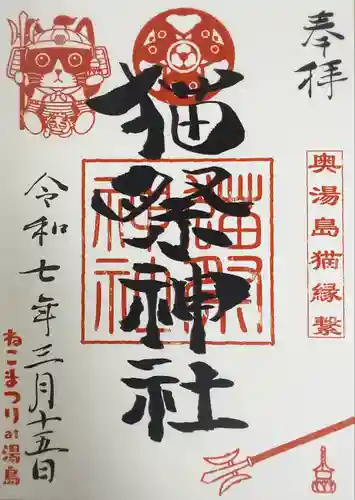 奉拝
奥湯島猫縁繋
猫祭神社
猫祭神社
令和七年三月十五日
ねこまつり at 湯島